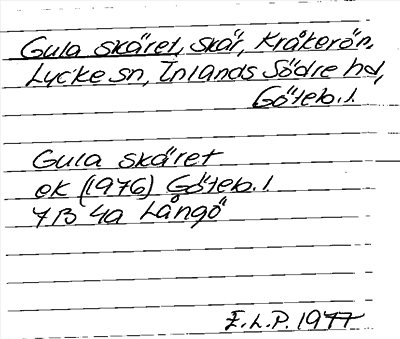 Gula skäret, skär, Kråkerön,
Lycke sn, Inlands Södre hd,
Göteb. l.
Gula skäret
ek (1976) Göteb. l
7B 4a Långö
E.L.P. 1977